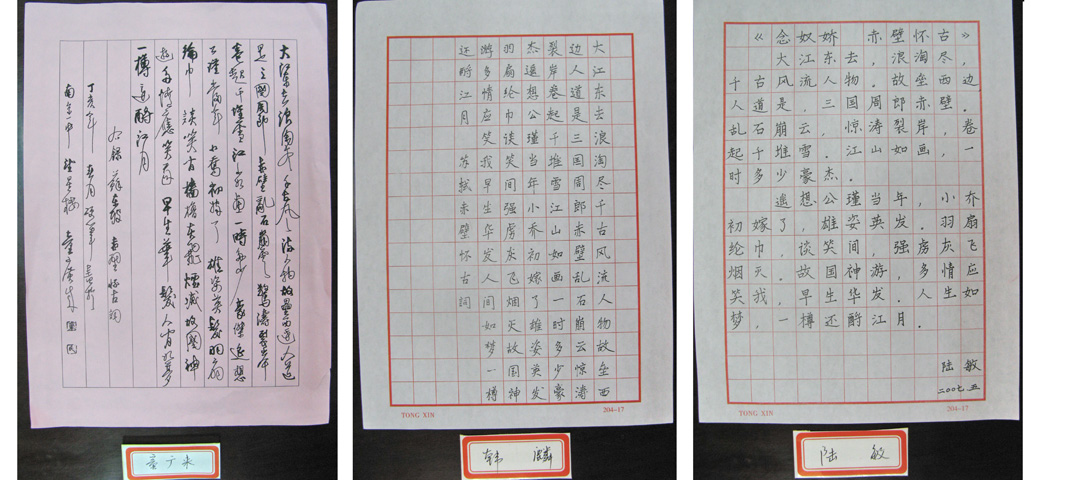 大江东去浪淘尽千古风流人物故垒西边人道
是三國周郎赤壁亂石崩雲驚濤裂岸
卷起千堆雪江山如畫一時多少豪傑遥想
公瑾當年小喬初嫁了雄姿英發羽扇
綸巾談笑間檣櫓灰飛煙滅故國神
遊多情應笑我早生華髮人间如夢
一樽還酹江月
右録蘇東坡赤壁怀古詞
丁亥年
大江东去浪淘尽千古风流人物故垒西
边人道是三国周郎赤壁乱石崩云惊涛
裂岸卷起千堆雪江山如画一时多少豪
杰遥想公瑾当年小乔初嫁了雄姿英发
羽扇纶巾谈笑间强虏灰飞烟灭故国神
游多情应笑我早生华发人间如梦一樽
还酹江月 苏轼赤壁怀古词
TONG XIN 204-17
韩麟
《念奴娇 赤壁怀古》
大江东去，浪淘尽，
千古风流人物。故垒西边
人道是，三国周郎赤壁。
乱石崩云，惊涛裂岸，卷
起千堆雪。江山如画，一
时多少豪杰。
遥想公瑾当年，小乔
初嫁了，雄姿英发。羽扇
纶巾，谈笑间，强虏灰飞
烟灭。故国神游，多情应
笑我，早生华发。人生如
梦，一樽还酹江月。
陆敏
二〇〇七.五
TONG XIN 204-17
陆敏